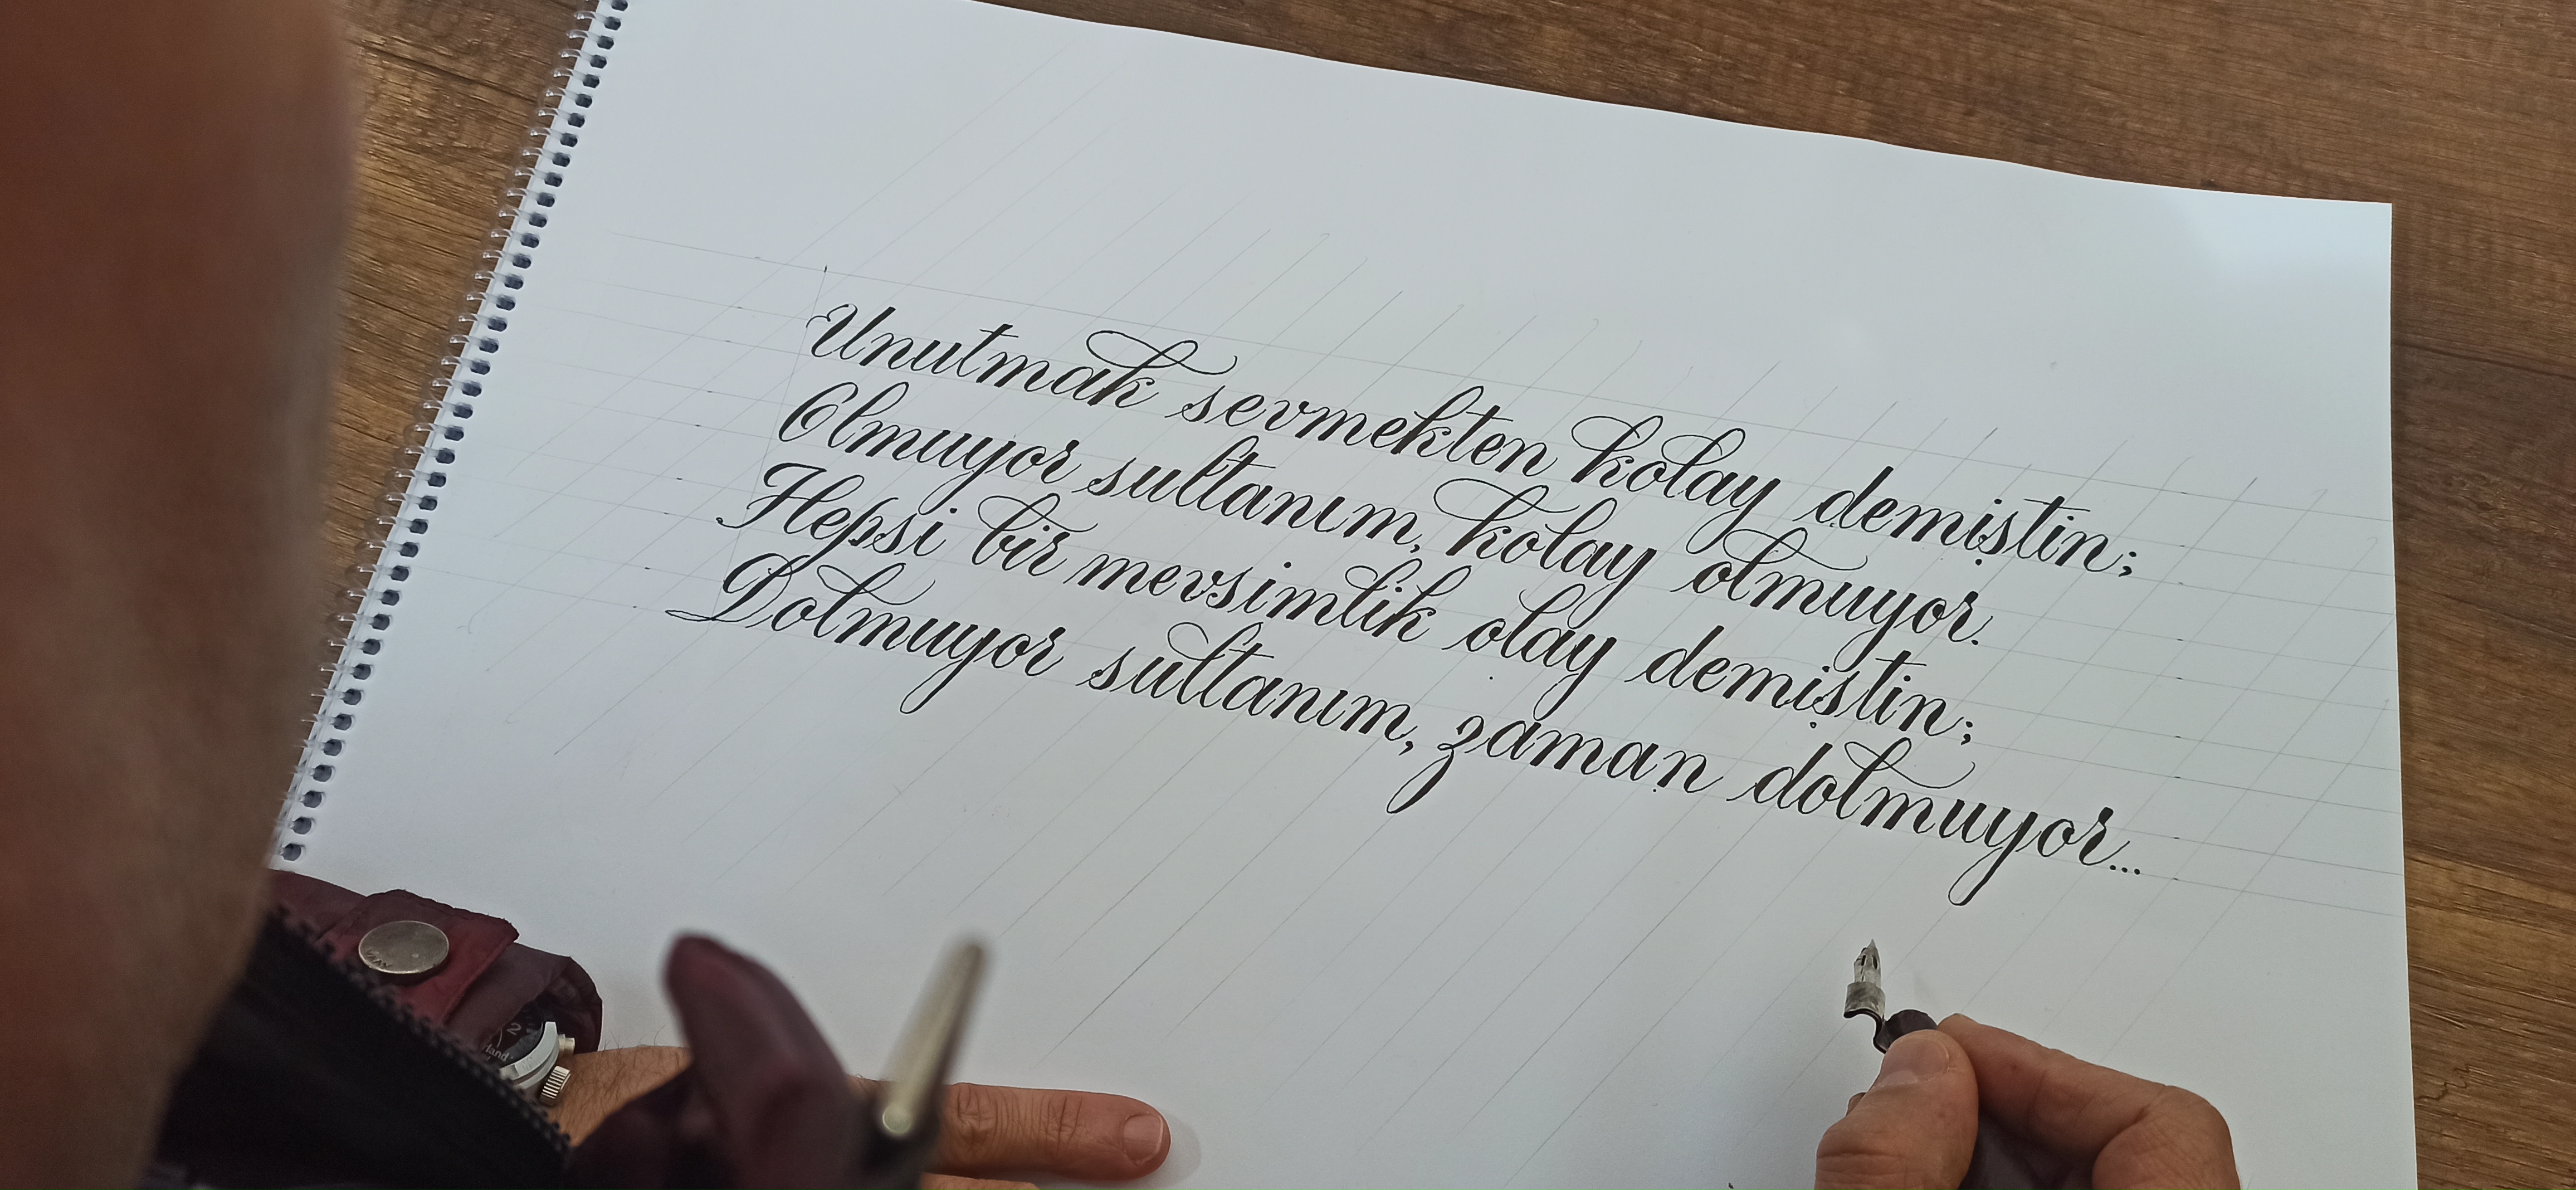 Unutmak sevmekten kolay demiştin;
Olmuyor sultanım, kolay olmuyor.
Hepsi bir mevsimlik olay demiştin;
Dolmuyor sultanım, zaman dolmuyor...
2